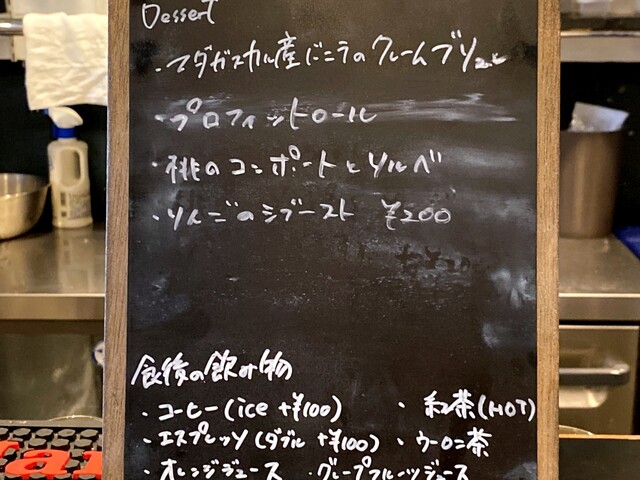 Dessert
・マダガスカル産バニラのクレームブリュレ
・プロフィットロール
・桃のコンポートとソルベ
・りんごのシブースト ¥200
食後の飲み物
・コーヒー(ice +¥100) ・紅茶(HOT)
・エスプレッソ(ダブル +¥100) ・ウーロン茶
・オレンジジュース ・グレープフルーツジュース